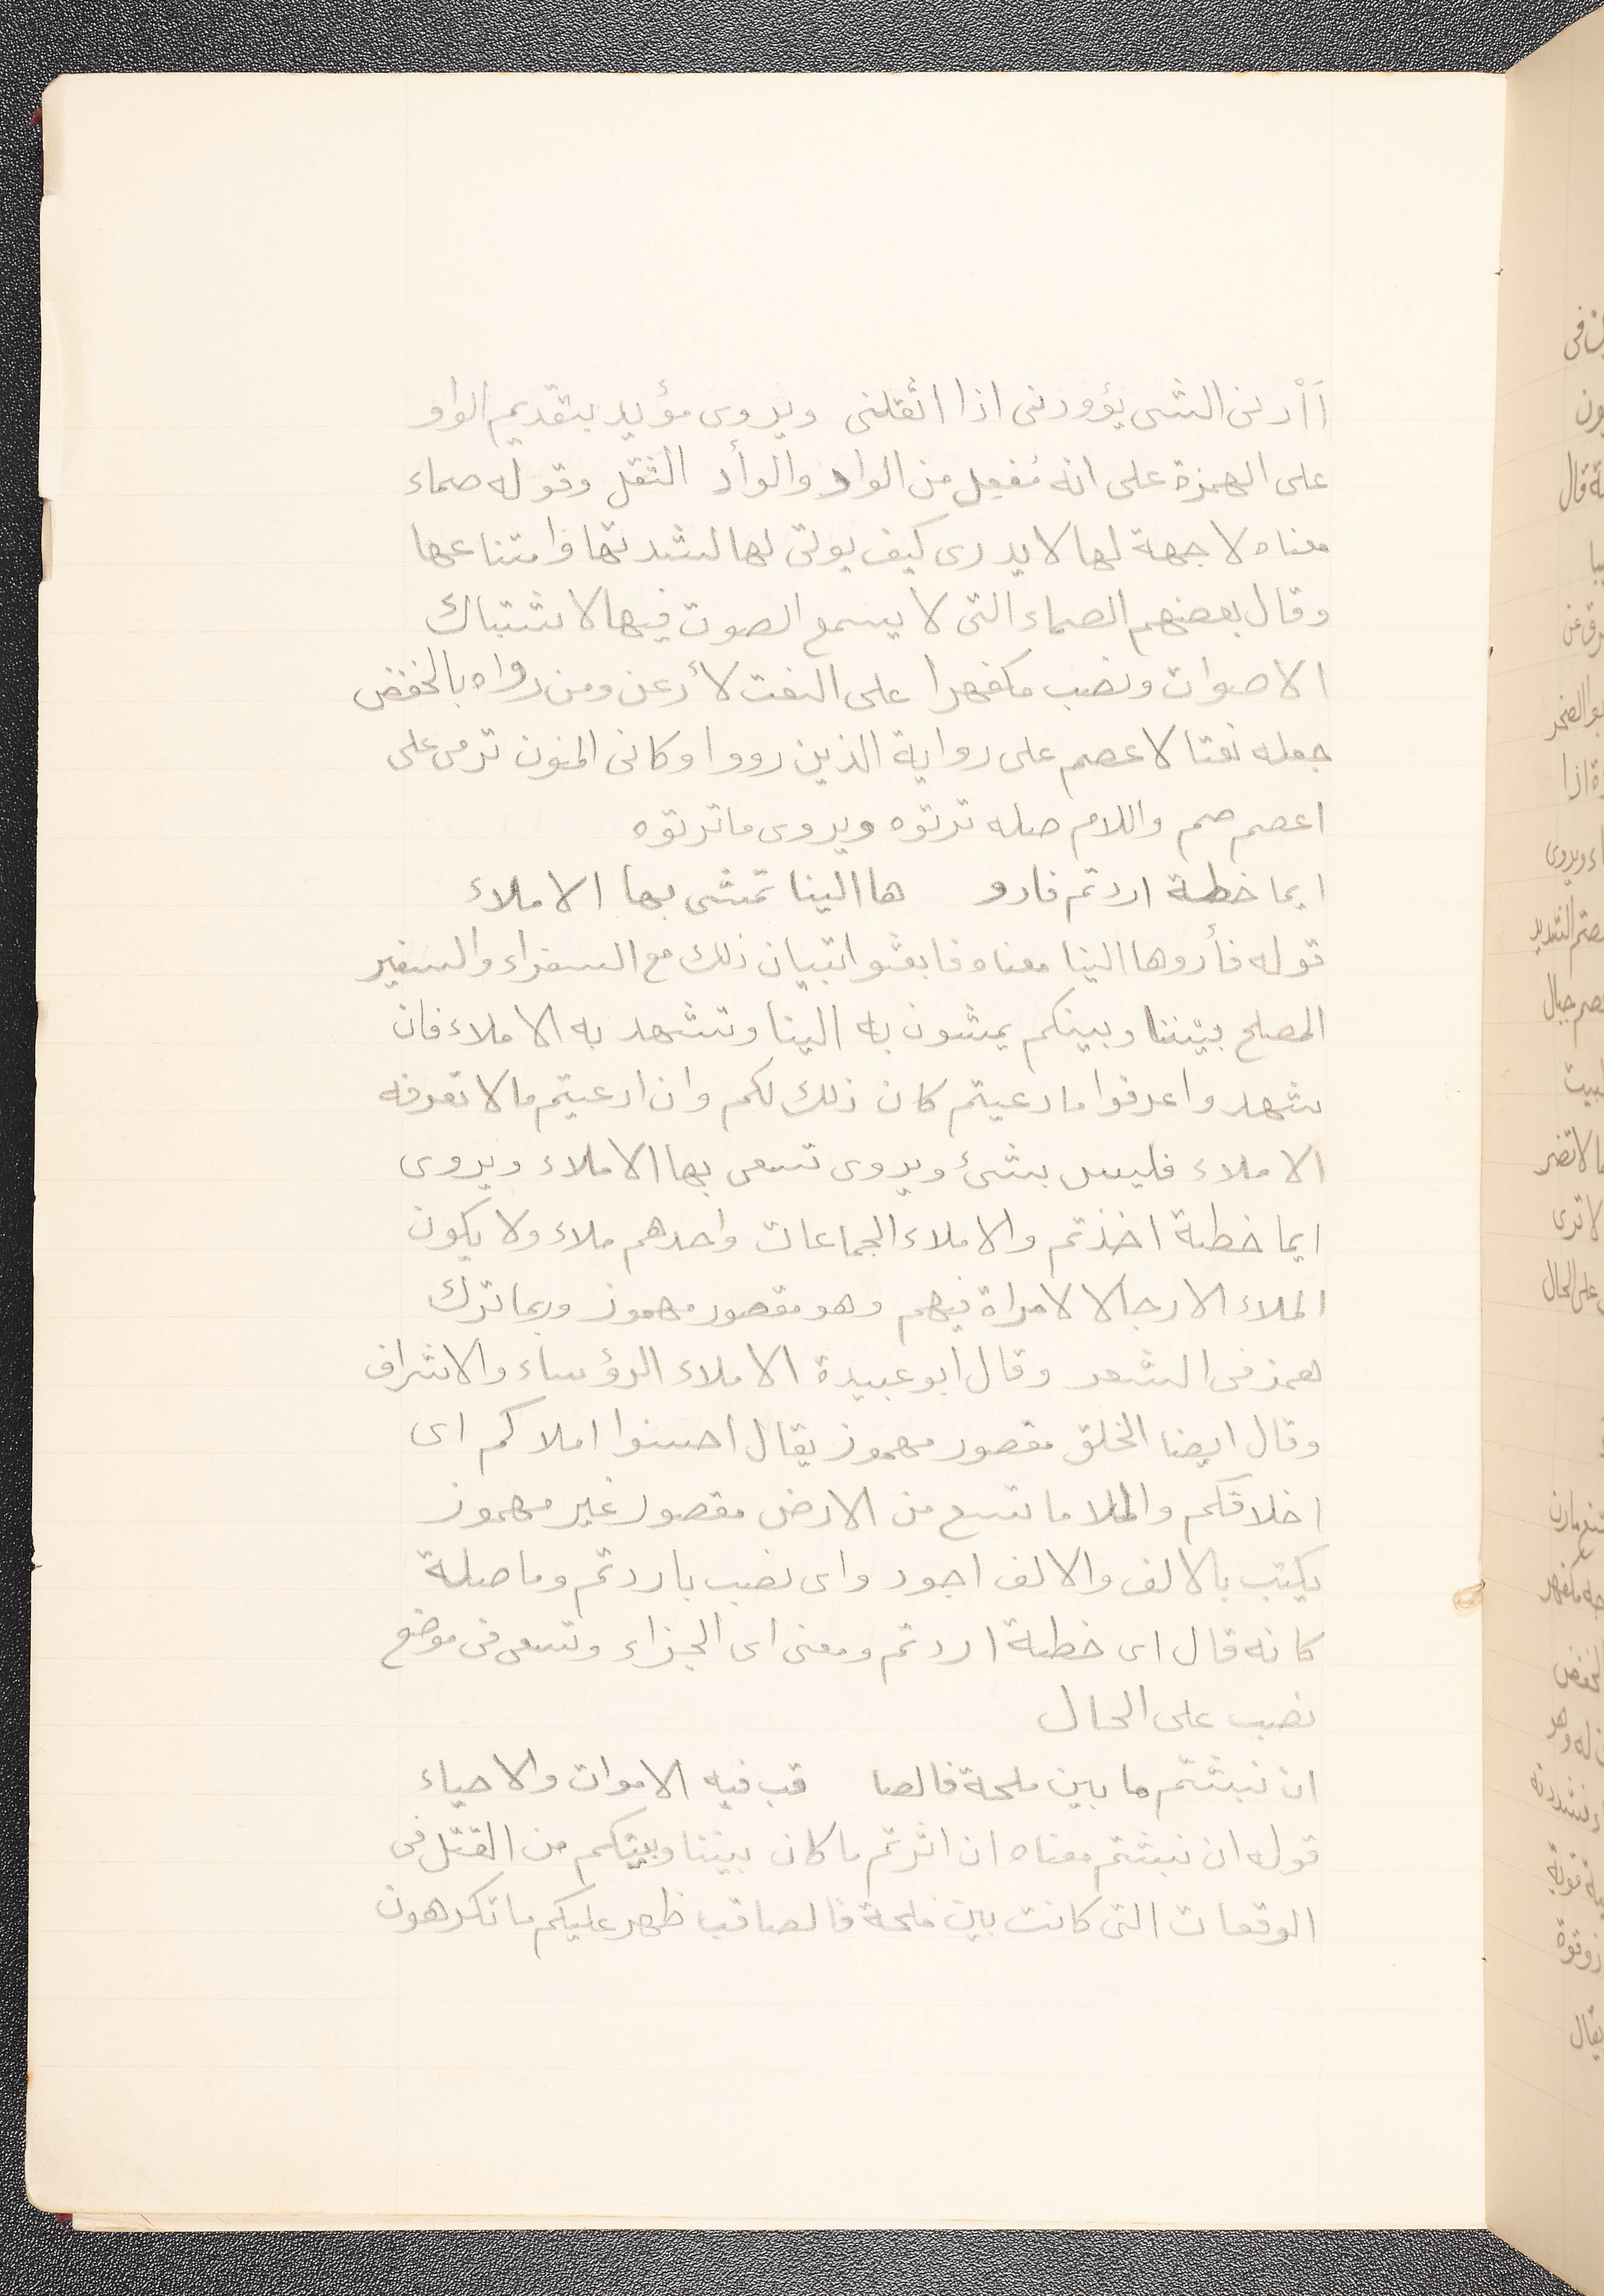 اَاْدنى الشى يؤودنى اذا اثقلنى ويروى مؤيد بتقديم الواو
على الهمزة على انه مُفعِل من الواد والوأد الثقل وقوله صماء
معناه لا جهة لها لا يدرى كيف يوتى لها لشدتها وامتناعها
وقال بعضهم الصماء التى لا يسمع الصوت فيها لاشتباك
الاصوات ونصب مكفهرا على النعت لأرعن ومن رواه بالخفض
جعله نعتا لاعصم على رواية الذين رووا وكانى المنون ترمى على
اعصم صم واللام صله ترتوه ويروى ماترتوه
ايما خطة اردتم فادو ها الينا تمشى بها الاملاء
قوله فأدوها الينا معناه فابعثوا تبيان ذلك مع السفراء والسفير
المصلح بيننا وبينكم يمشون به الينا وتشهد به الاملاء فان
شهدوا عرفوا مادعيتم كان ذلك لكم وان ادعيتم مالا تعرفه
الاملاء فليس بشئ ويروى تسعى بها الاملاء ويروى
ايما خطة اخذتم والاملاء الجماعات واحدهم ملاء ولا يكون
الملاء الا رجالا لامراة فيهم وهو مقصور مهموز وربما ترك
همز فى الشعر وقال ابو عبيدة الاملاء الرؤساء والاشراف
وقال ايضا الخلق مقصور مهموز يقال احسنوا املاكم اى
اخلاقكم والملا ما تسع من الارض مقصور غير مهموز
يكتب بالالف والالف اجود واى نصب باردتم وما صلة
كانه قال اى خطة اردتم ومعنى اى الجزاء وتسعى فى موضع
نصب على الحال
ان نبشتم ما بين ملحة فالصا قب فيه الاموات والاحياء
قوله ان نبشتم معناه ان اثرتم ما كان بيننا وبينكم من القتل فى
الوقعات التى كانت بين ملحة فالصاقب ظهر عليكم ما تكرهون